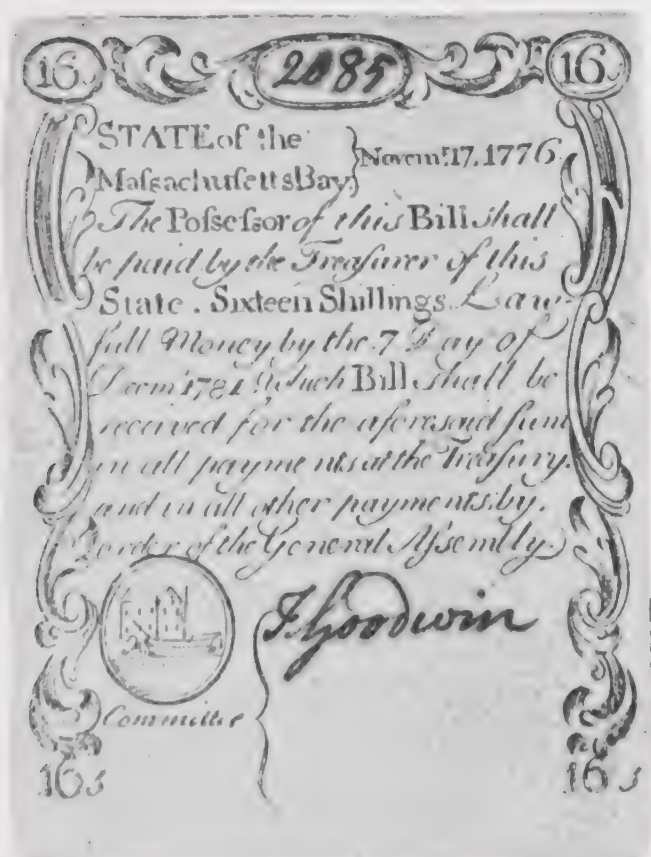 16 2085 16
STATE of the
Maſsachuſetts Bay } Novem.ʳ 17. 1776
The Poſseſsor of this Bill shall
be paid by the Treaſurer of this
State . Sixteen Shillings Law-
full Money by the 7 Day of
Decm.ʳ 1781 which Bill shall be
received for the aforesaid ſum
in all payments at the Treaſury.
and in all other payments by.
order of the General Aſsembly.
J Goodwin
Committee
16s 16s